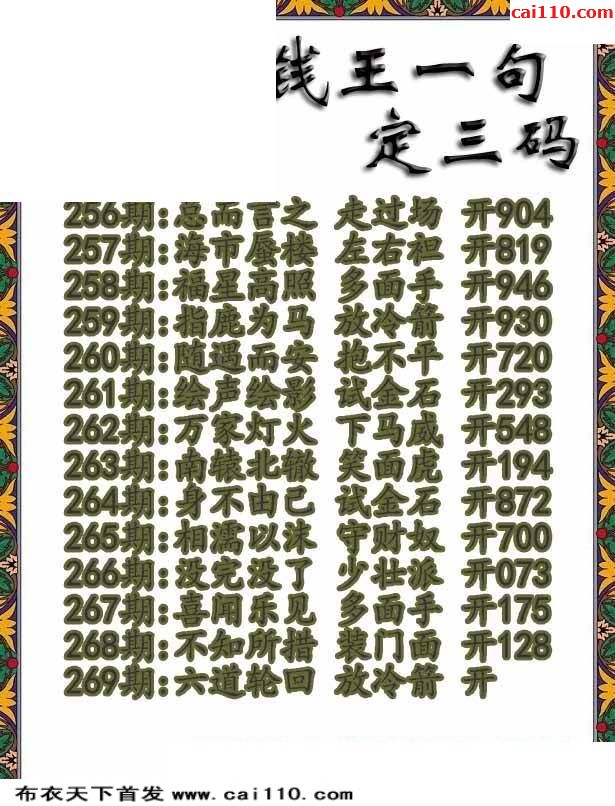 cai110.com
钱王一句
定三码
256期:总而言之 走过场 开904
257期:海市蜃楼 左右袒 开819
258期:福星高照 多面手 开946
259期:指鹿为马 放冷箭 开930
260期:随遇而安 抱不平 开720
261期:绘声绘影 试金石 开293
262期:万家灯火 下马威 开548
263期:南辕北辙 笑面虎 开194
264期:身不由己 试金石 开872
265期:相濡以沫 守财奴 开700
266期:没完没了 少壮派 开073
267期:喜闻乐见 多面手 开175
268期:不知所措 装门面 开128
269期:六道轮回 放冷箭 开
布衣天下首发 www.cai110.com